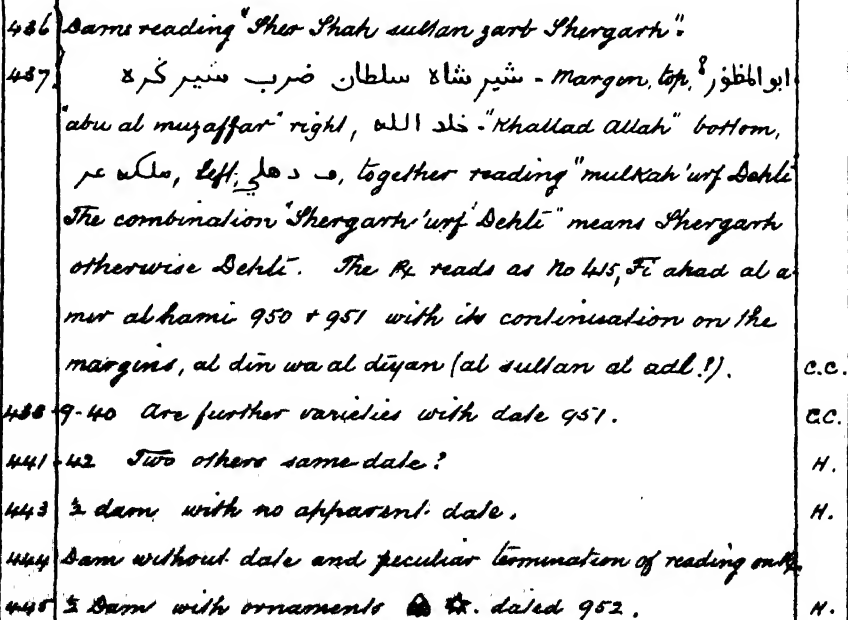 436 Dams reading "Sher Shah sultan zarb Shergarh".
437 شير شاه سلطان ضرب شير گره - Margin, top, ابو المظفر
"abu al muzaffar" right, خلد الله - "Khallad Allah" bottom,
ملكه عر, left, ف دهلي, together reading "mulkah 'urf Dehli
The combination "Shergarh 'urf Dehli" means Shergarh
otherwise Dehli. The Rx reads as No 415, Fi ahad al a-
mir al hami 950 + 951 with its continuation on the
margins, al din wa al diyan (al sultan al adl!). C.C.
438-9-40 Are further varieties with date 951. C.C.
441-42 Two others same date? H.
443 ½ dam with no apparent date. H.
444 Dam without date and peculiar termination of reading on Rx
445 ½ Dam with ornaments dated 952. H.